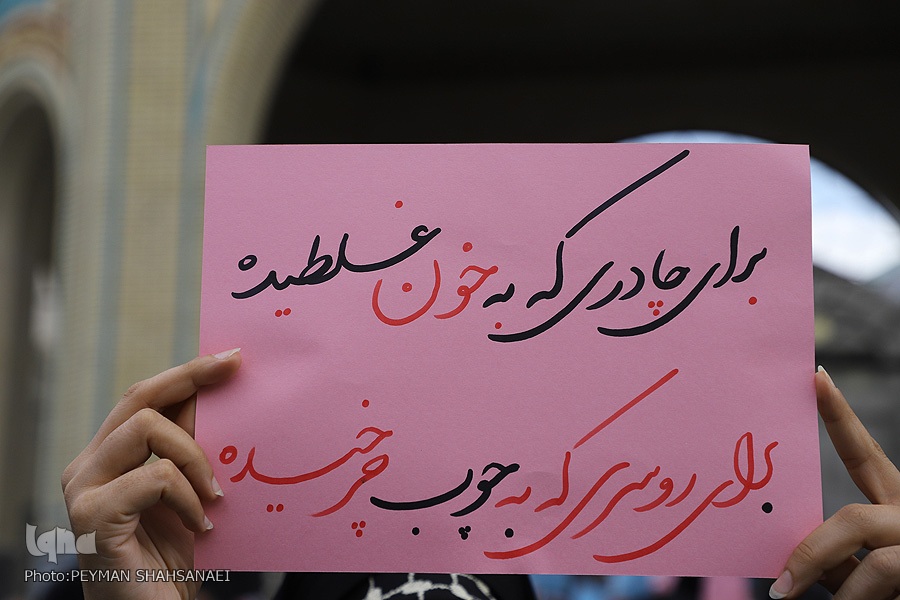 برای چادری که به خون غلطیده
برای روسری که به چوب چرخیده
iqna
Photo:PEYMAN SHAHSANAEI